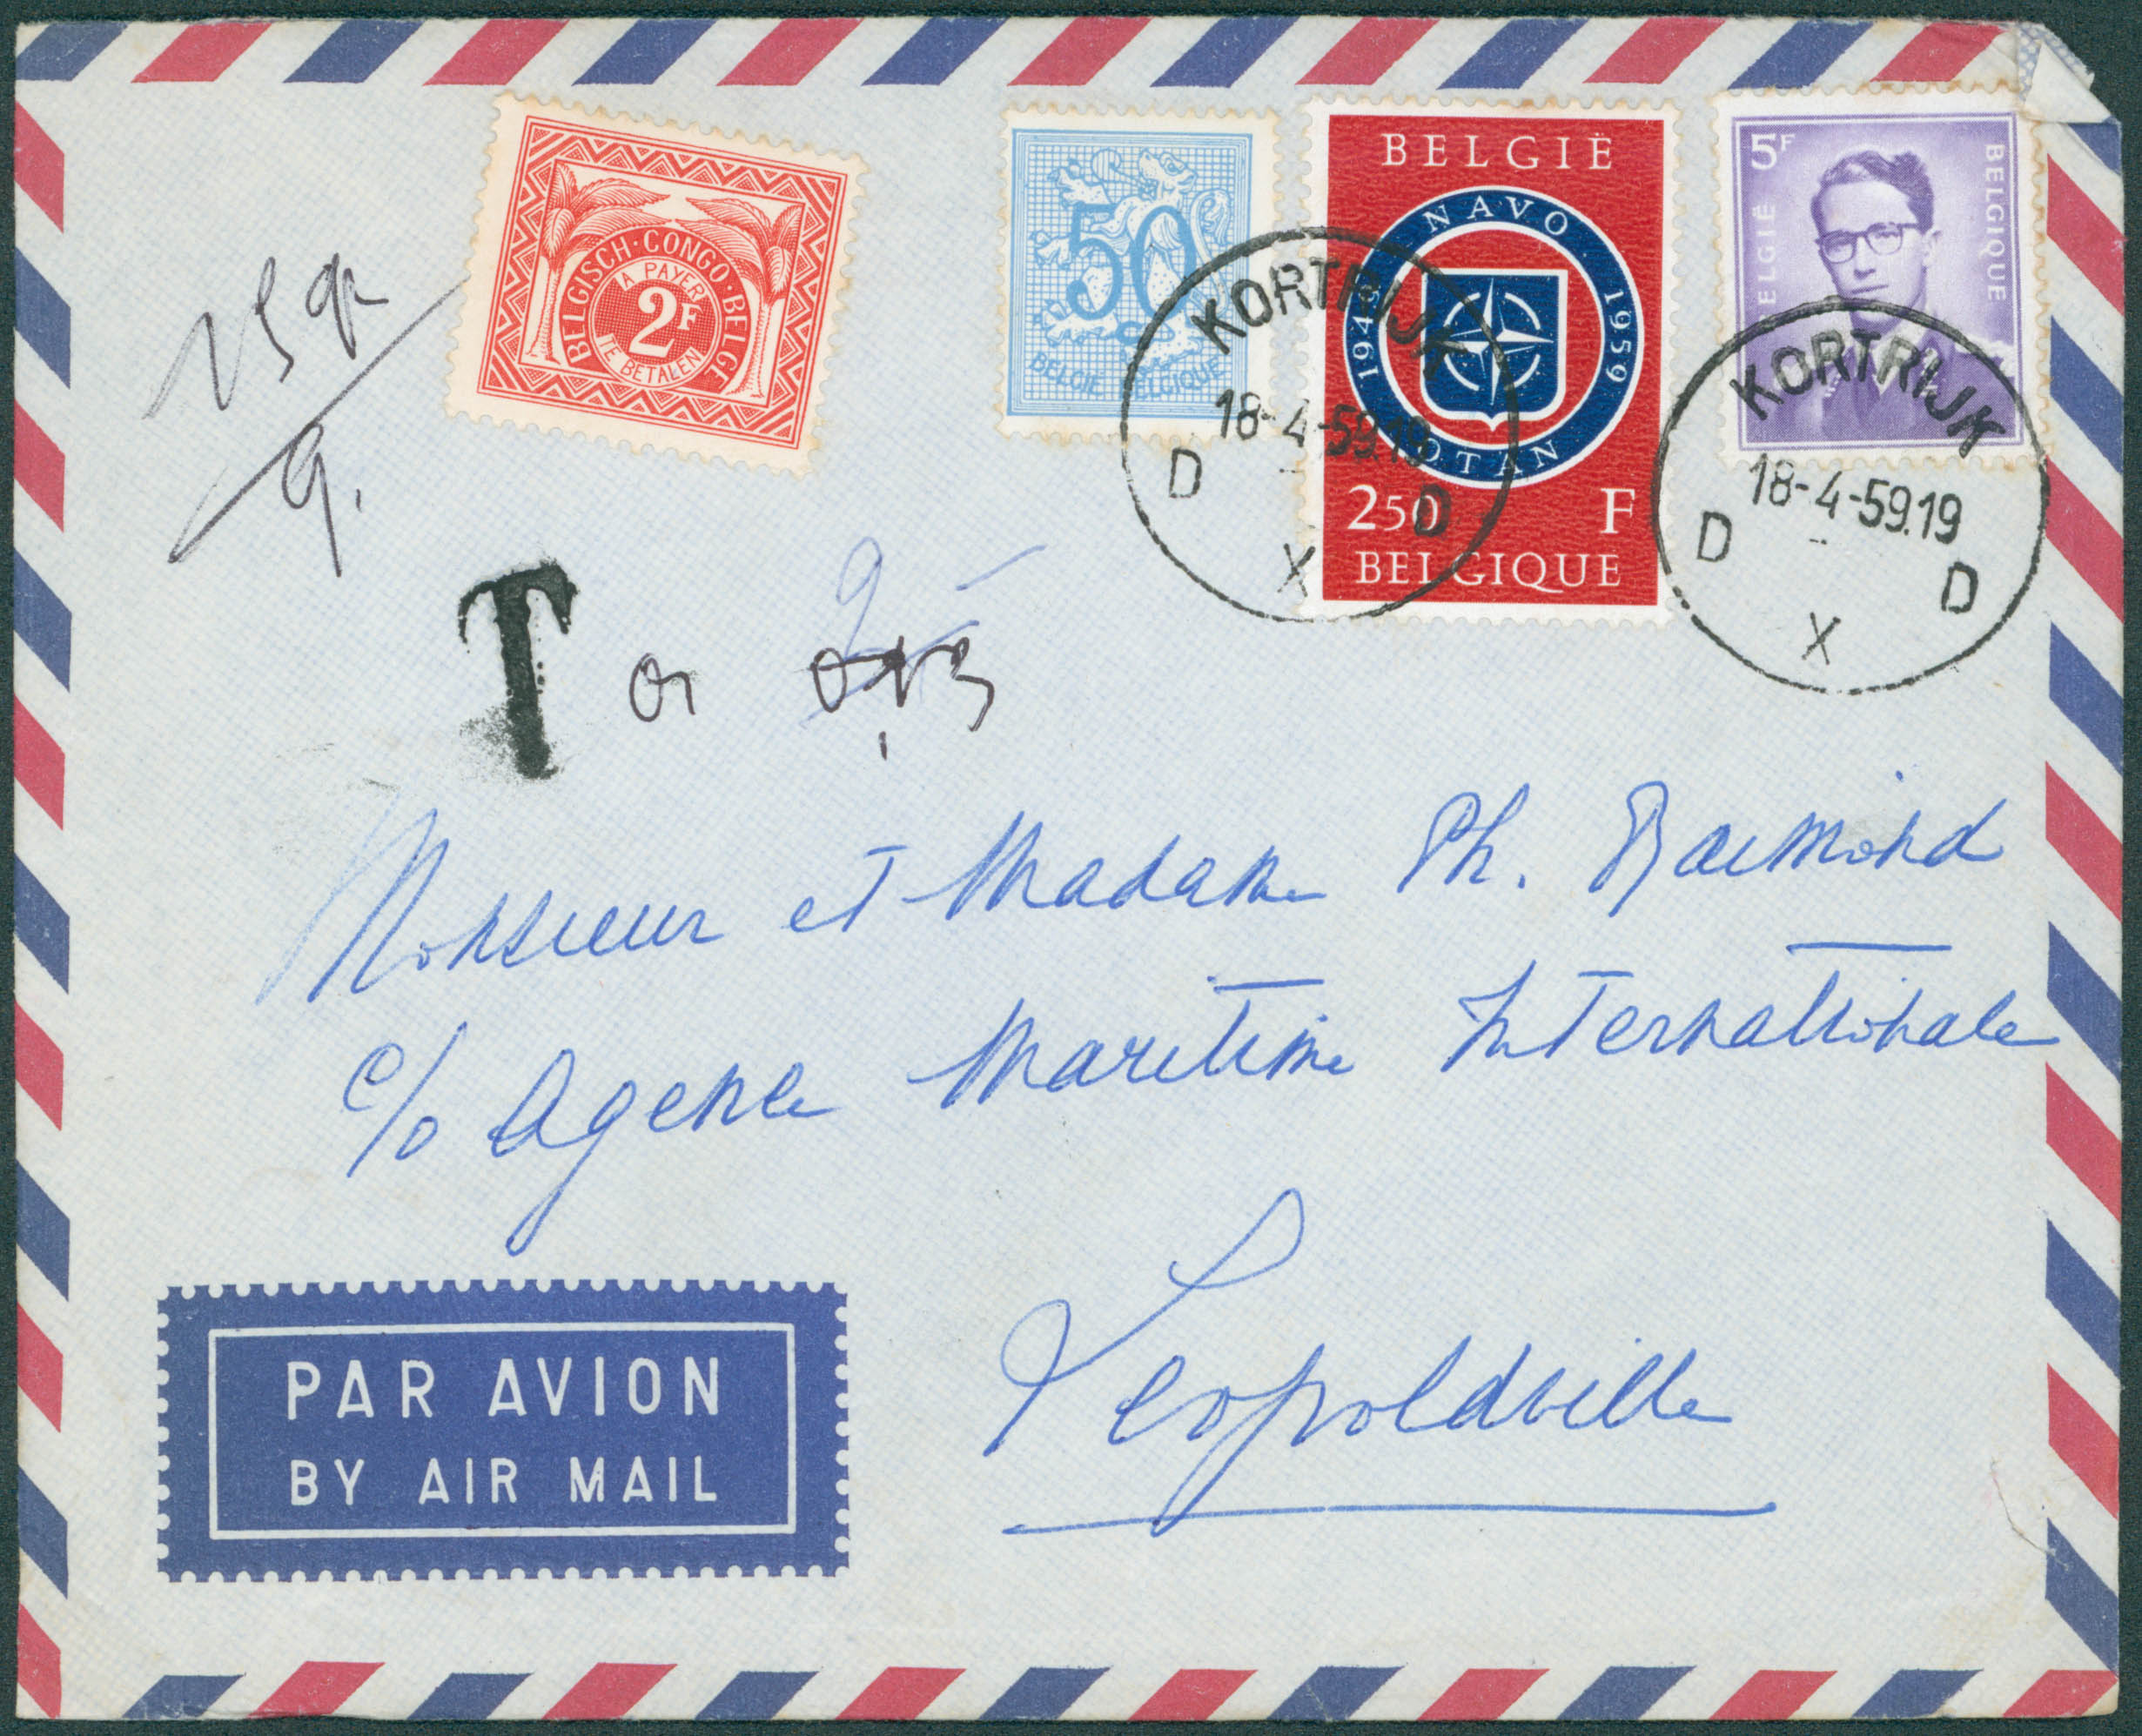 BELGISCH·CONGO·BELGE
A PAYER
2F
TE BETALEN
50
BELGIË BELGIQUE
BELGIË
NAVO
1949 1959
OTAN
250 F
BELGIQUE
5F
BELGIË BELGIQUE
KORTRIJK
18-4-59.19
D D
X
KORTRIJK
18-4-59.19
D D
X
9.
T
Monsieur et Madame Ph. Raimond
c/o Agence Maritime Internationale
Leopoldville
PAR AVION
BY AIR MAIL